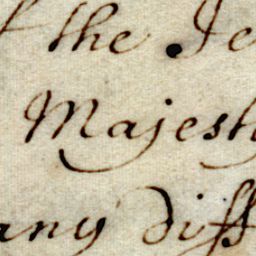 the
Majesty
any diff